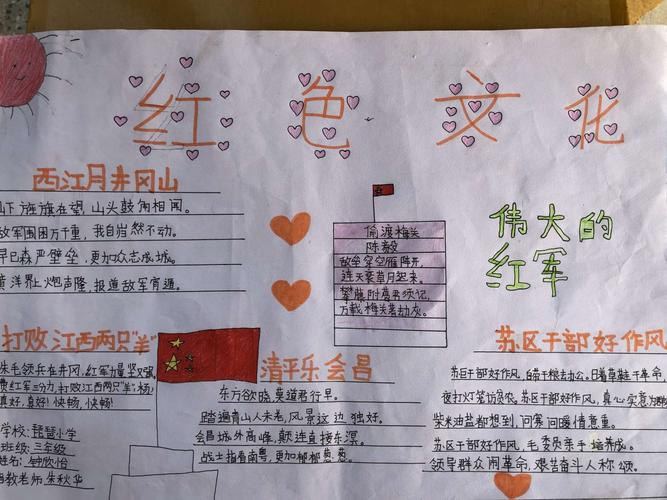 红色文化
西江月井冈山
山下旌旗在望,山头鼓角相闻。
敌军围困万千重,我自岿然不动。
早已森严壁垒,更加众志成城。
黄洋界上炮声隆,报道敌军宵遁。
偷渡梅关
陈毅
敌垒穿空雁阵开,
连天衰草月起来。
攀藤附葛君须记,
万载梅关著劫灰。
伟大的
红军
打败江西两只“羊”
朱毛领兵在井冈,红军力量坚又强
费红军三分力,打败江西两只“羊”杨
真好,真好!快畅,快畅!
学校:琵琶小学
班级:三年级
姓名:钟欣怡
指教老师 朱秋华
清平乐会昌
东方欲晓,莫道君行早。
踏遍青山人未老,风景这边独好。
会昌城外高峰,颠连直接东溟。
战士指看南粤,更加郁郁葱葱。
苏区干部好作风
苏区干部好作风,自带干粮去办公。日着草鞋干革命,
夜打灯笼访贫农。苏区干部好作风,真心实意为群
柴米油盐都想到,问寒问暖情意重。
苏区干部好作风,毛委员亲手培养成。
领导群众闹革命,艰苦奋斗人称颂。